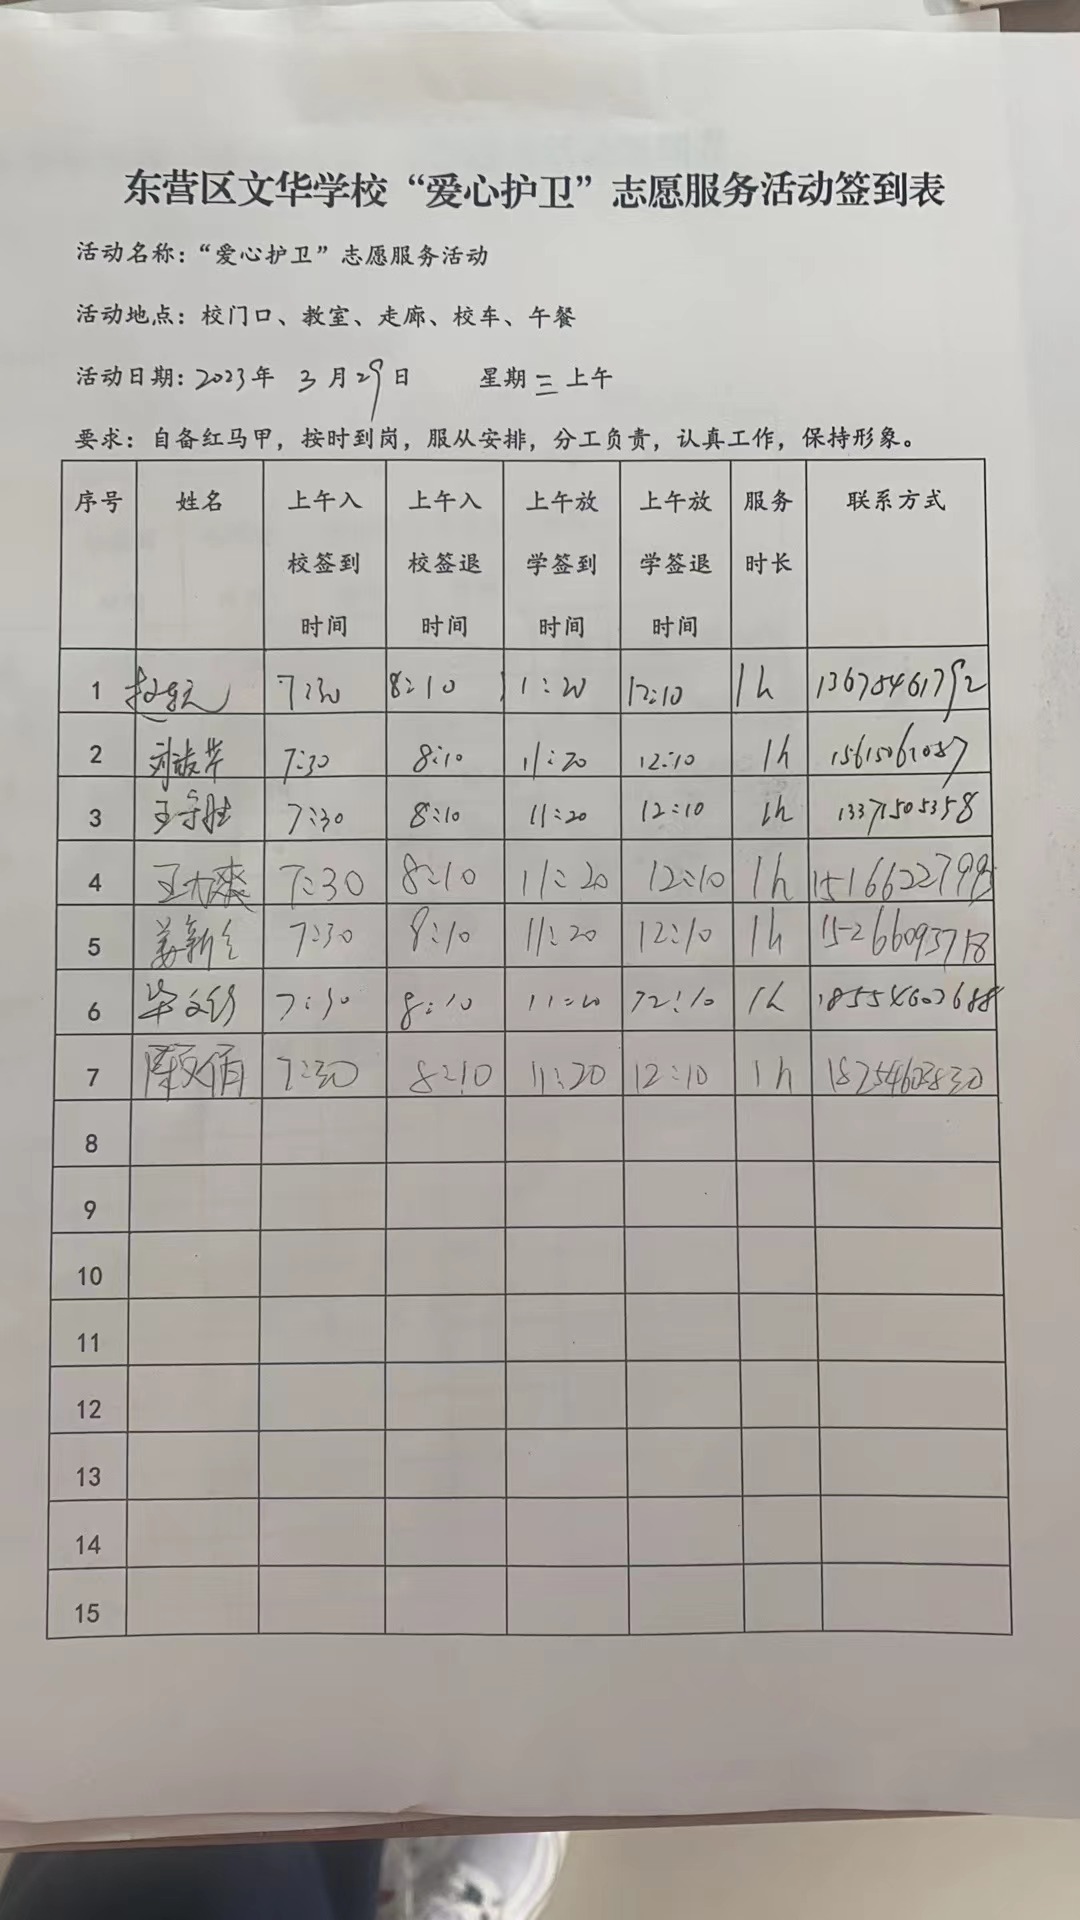 东营区文华学校“爱心护卫”志愿服务活动签到表
活动名称：“爱心护卫”志愿服务活动
活动地点：校门口、教室、走廊、校车、午餐
活动日期：2023年 3月29日 星期三上午
要求：自备红马甲，按时到岗，服从安排，分工负责，认真工作，保持形象。
序号 姓名 上午入校签到时间 上午入校签退时间 上午放学签到时间 上午放学签退时间 服务时长 联系方式
1 7:30 8:10 11:20 12:10 1h 13675461792
2 7:30 8:10 11:20 12:10 1h
3 王守胜 7:30 8:10 11:20 12:10 1h 13371505358
4 7:30 8:10 11:20 12:10 1h 15166227995
5 7:30 8:10 11:20 12:10 1h 15266093718
6 7:30 8:10 11:20 12:10 1h
7 7:30 8:10 11:20 12:10 1h 18254603830
8
9
10
11
12
13
14
15